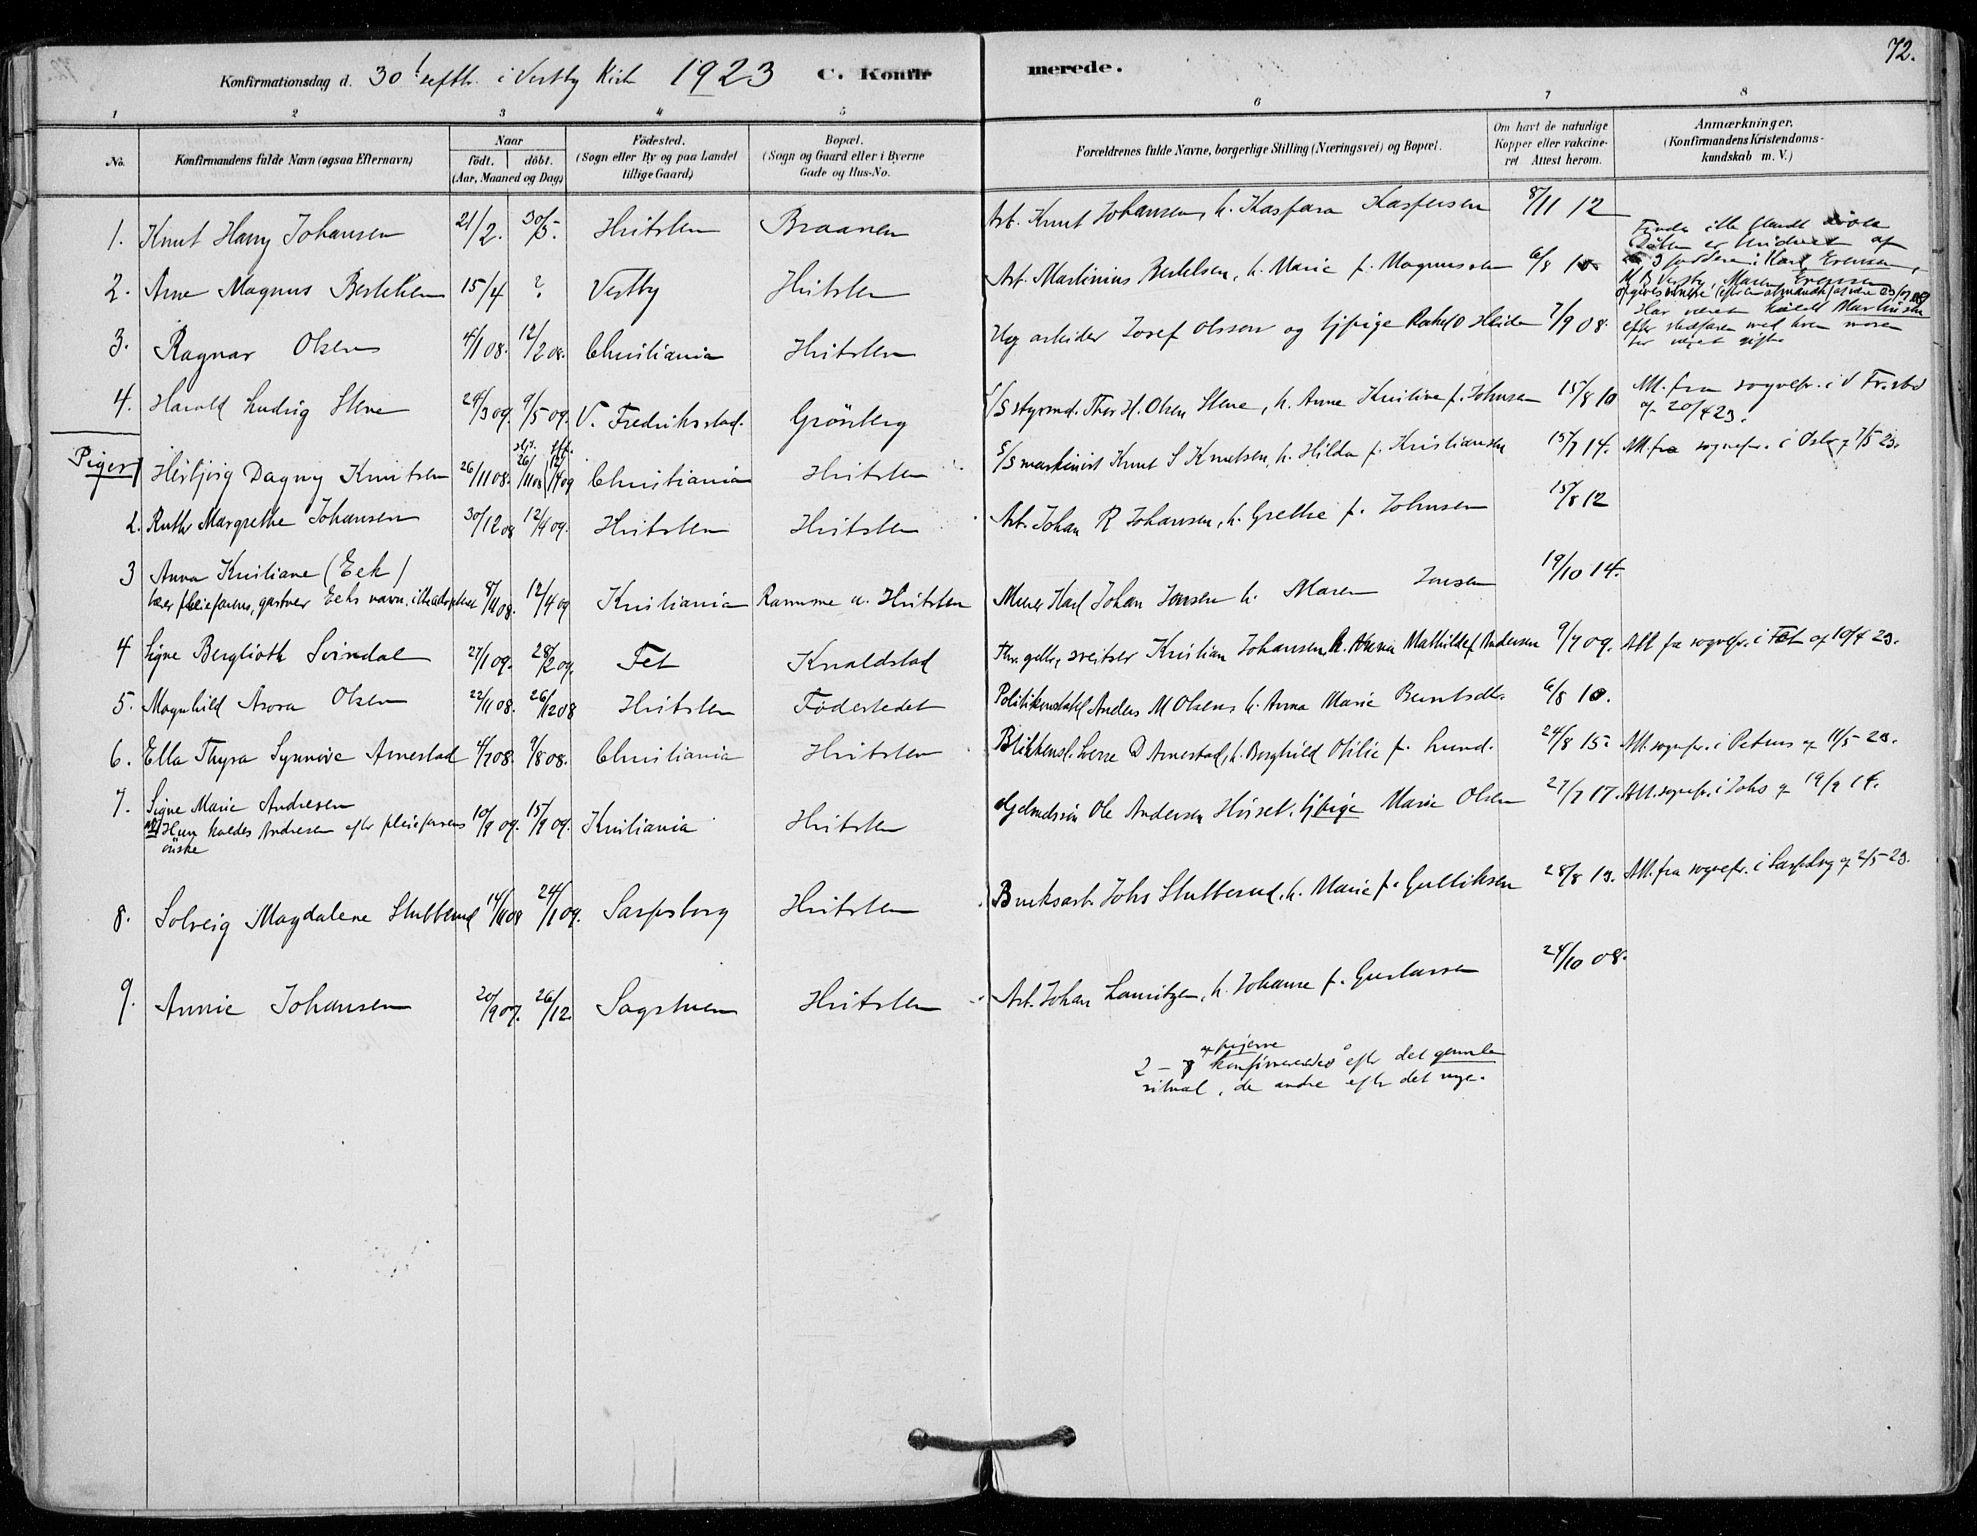 72.
Konfirmationsdag d. 30 septbr. i Vestby Kirk 1923 C. Konfirmerede.
1 2 3 4 5 6 7 8
No. Konfirmandens fulde Navn (ogsaa Efternavn) Naar födt. döbt. (Aar, Maaned og Dag) Födested. (Sogn eller By og paa Landet tillige Gaard) Bopæl. (Sogn og Gaard eller i Byerne Gade og Hus-No. Forældrenes fulde Navne, borgerlige Stilling (Næringsvei) og Bopæl. Om havt de naturlige Kopper eller vakcineret Attest herom. Anmærkninger. (Konfirmandens Kristendomskundskab m. V.)
1. Knut Harry Johansen 21/2. 30/5. Hvitsten Braanen Arb. Knut Johansen, h. Kaspara Kaspersen 8/11 12
2. Arne Magnus Bertelsen 15/4 ? Vestby Hvitsten Arb. Martinius Bertelsen, h. Marie f. Magnussen 6/8 10
Findes ikke blandt döbte
Dåben er bevidnet af
3 faddere: Karl Evensen,
Vestby, Maren Evensen
3. Ragnar Olsen 4/1 08. 12/2 08. Christiania Hvitsten Veg arbeider Josef Olsson og tjpige Rakel O Heide 7/9 08.
Har været kaldt Martinsen
efter stedfaren med hvem moren
har været gift
4. Harald Ludvig Stene 24/3 09. 9/5 09. V. Fredriksstad. Grönberg S/S styrmd. Thor H. Olsen Stene, h. Anne Kristine f. Johnsen 15/8 10 Att. fra sognepr. i V Fr.stad af 20/4 23.
Piger
1 Herbjörg Dagny Knutsen 26/11 08. Christiania Hvitsten S/S maskinist Knut S Knutsen, h. Hilda f. Kristiansen 15/7 14. Att. fra sognepr. i Oslo af 7/5 23.
2. Ruth Margrethe Johansen 30/12 08 12/4 09. Hvitsten Hvitsten Arb. Johan R Johansen, h. Grethe f. Johnsen 15/8 12
3 Anna Kristiane (Eek)
bær pleiefarens, gartner Eeks navn, ikke adopteret 8/11 08. 12/4 09 Kristiania Ramme a. Hvitsten Murer Karl Johan Jonsen h. Maren Jonsen 19/10 14.
4 Signe Berglioth Svindal 27/1 09. 28/2 09. Fet Knaldstad Kristian Johansen h. Anna Mathilde f. Andersen 9/7 09. Att. fra sognepr. i Fet af 10/4 23.
5. Magnhild Asora Olsen 22/11 08. 26/12 08 Hvitsten Födestedet Politikonstabel Anders M Olsen h. Anna Marie Berntsdtr. 6/8 10.
6. Ella Thyra Synnöve Arnestad 4/7 08. 9/8 08. Christiania Hvitsten Blikkensl. D Arnestad, h. Borghild Otilie f. Lund. 24/8 15. Att. sognepr. i Petrus af 11/5 23.
7. Signe Marie Andresen
NB Hun kaldes Andresen efter pleiefarens
önske 10/8 09. 15/9 09. Kristiania Hvitsten Ole Andersen Huset, tjpige Marie Olsen 27/7 17. Att. sognepr. i Johs af 19/2 14.
8. Solveig Magdalene Stubberud 14/11 08 24/1 09. Sarpsborg Hvitsten Bruksarb. Johs Stubberud, h. Marie f. Gulliksen 28/8 13. Att. fra sognepr. i Sarpsborg af 2/5 23.
9. Annie Johansen 20/9 07. 26/12. Sagstuen Hvitsten Arb. Johan Lauritzen, h. Johanne f. Gustavsen 24/10 08.
af pigerne
2 – 7 konfirmeredes efter det gamle
ritual, de andre efter det nye.